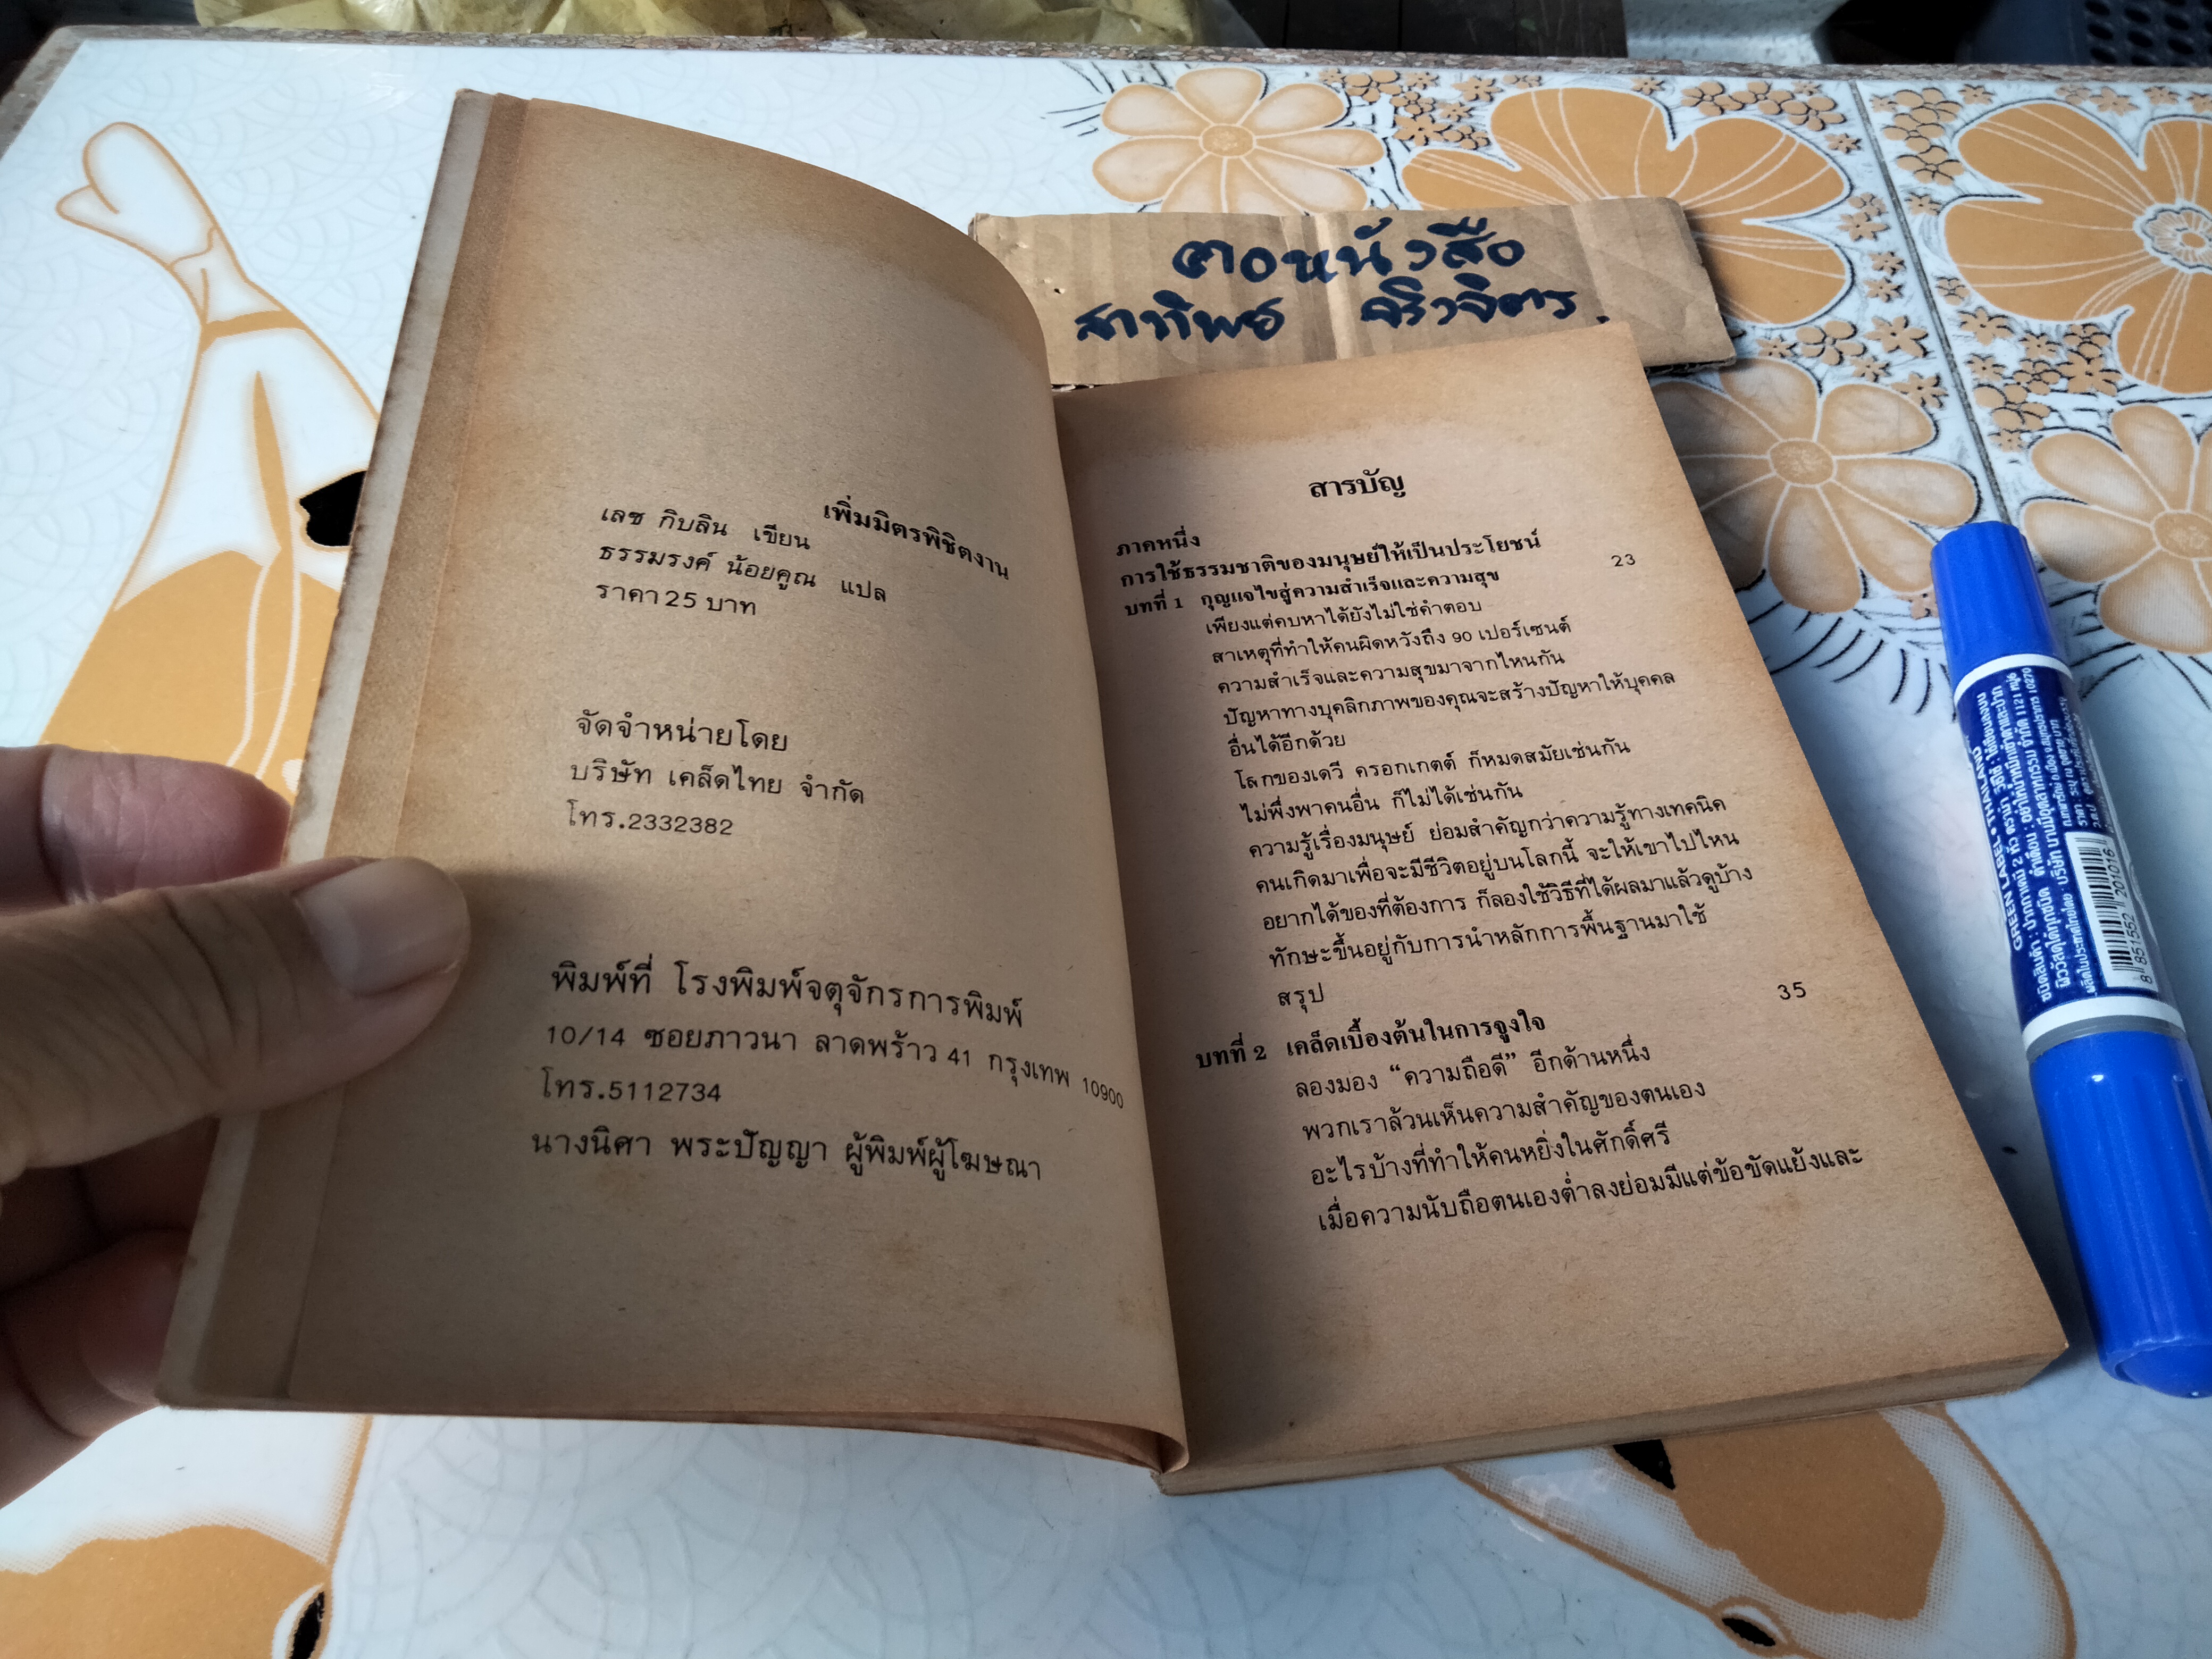 คอหนังสือ
สาทิพย์ จริวจิตร.
เพิ่มมิตรพิชิตงาน
เลซ กิบลิน เขียน
ธรรมรงค์ น้อยคูณ แปล
ราคา 25 บาท
จัดจำหน่ายโดย
บริษัท เคล็ดไทย จำกัด
โทร.2332382
พิมพ์ที่ โรงพิมพ์จตุจักรการพิมพ์
10/14 ซอยภาวนา ลาดพร้าว 41 กรุงเทพ 10900
โทร.5112734
นางนิศา พระปัญญา ผู้พิมพ์ผู้โฆษณา
สารบัญ
ภาคหนึ่ง
การใช้ธรรมชาติของมนุษย์ให้เป็นประโยชน์
บทที่ 1 กุญแจไขสู่ความสำเร็จและความสุข 23
เพียงแต่คบหาได้ยังไม่ใช่คำตอบ
สาเหตุที่ทำให้คนผิดหวังถึง 90 เปอร์เซนต์
ความสำเร็จและความสุขมาจากไหนกัน
ปัญหาทางบุคลิกภาพของคุณจะสร้างปัญหาให้บุคคล
อื่นได้อีกด้วย
โลกของเดวี ครอกเกตต์ ก็หมดสมัยเช่นกัน
ไม่พึ่งพาคนอื่น ก็ไม่ได้เช่นกัน
ความรู้เรื่องมนุษย์ ย่อมสำคัญกว่าความรู้ทางเทคนิค
คนเกิดมาเพื่อจะมีชีวิตอยู่บนโลกนี้ จะให้เขาไปไหน
อยากได้ของที่ต้องการ ก็ลองใช้วิธีที่ได้ผลมาแล้วดูบ้าง
ทักษะขึ้นอยู่กับการนำหลักการพื้นฐานมาใช้
สรุป
บทที่ 2 เคล็ดเบื้องต้นในการจูงใจ 35
ลองมอง “ความถือดี” อีกด้านหนึ่ง
พวกเราล้วนเห็นความสำคัญของตนเอง
อะไรบ้างที่ทำให้คนหยิ่งในศักดิ์ศรี
เมื่อความนับถือตนเองต่ำลงย่อมมีแต่ข้อขัดแย้งและ
GREEN LABEL • THAILAND
ชนิดสินค้า : ปากกาเคมี 2 หัว ตราม้า วิธีใช้ : ใช้เขียนลงบน
8 851552 201016